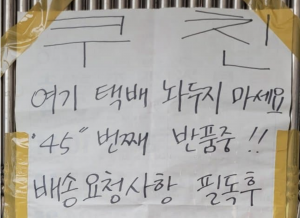 쿠 친
여기 택배 놔두지 마세요
"45" 번째 반품중 !!
배송요청사항 필독후